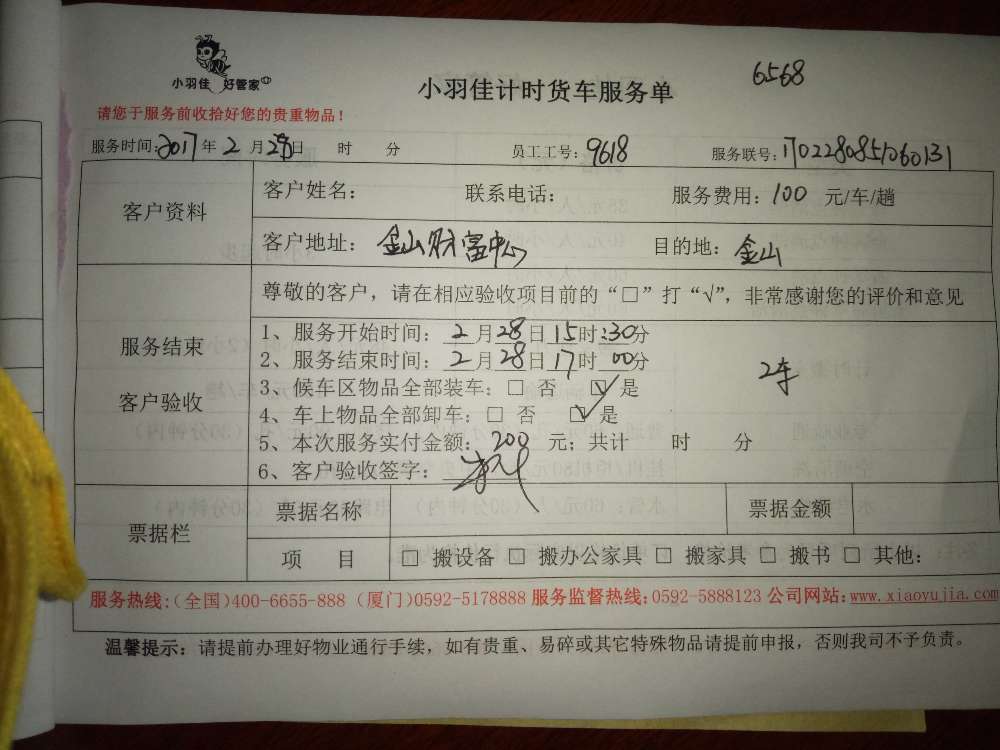 小羽佳 好管家
小羽佳计时货车服务单
6568
请您于服务前收拾好您的贵重物品！
服务时间：2017年 2 月 28日 时 分 员工工号：9618 服务联号：1702280851060131
客户资料
客户姓名： 联系电话： 服务费用：100 元/车/趟
客户地址：金山财富中心 目的地：金山
服务结束
客户验收
尊敬的客户，请在相应验收项目前的“□”打“√”，非常感谢您的评价和意见
1、服务开始时间：2月28日15时:30分
2、服务结束时间：2月28日17时00分
2车
3、候车区物品全部装车：□ 否 ☑ 是
4、车上物品全部卸车：□ 否 ☑ 是
5、本次服务实付金额：200 元；共计 时 分
6、客户验收签字：
票据栏
票据名称 票据金额
项 目 □ 搬设备 □ 搬办公家具 □ 搬家具 □ 搬书 □ 其他：
服务热线：（全国）400-6655-888（厦门）0592-5178888 服务监督热线：0592-5888123 公司网站：www.xiaoyujia.com
温馨提示：请提前办理好物业通行手续，如有贵重、易碎或其它特殊物品请提前申报，否则我司不予负责。